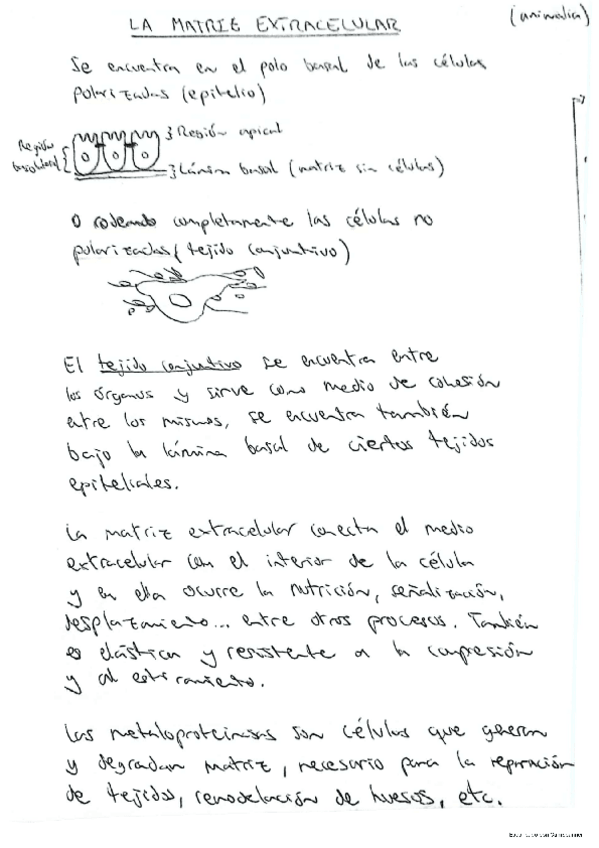 LA MATRIZ EXTRACELULAR
(animalia)
Se encuentra en el polo basal de las células
polarizadas (epitelio)
Región apical
Región
basolateral
Lámina basal (matriz sin células)
O rodeando completamente las células no
polarizadas (tejido conjuntivo)
El tejido conjuntivo se encuentra entre
los órganos y sirve como medio de cohesión
entre los mismos, se encuentra también
bajo la lámina basal de ciertos tejidos
epiteliales.
La matriz extracelular conecta el medio
extracelular con el interior de la célula
y en ella ocurre la nutrición, señalización,
desplazamiento... entre otros procesos. También
es elástica y resistente a la compresión
y al estiramiento.
Las metaloproteinasas son células que generan
y degradan matriz, necesario para la reparación
de tejidos, remodelación de huesos, etc.